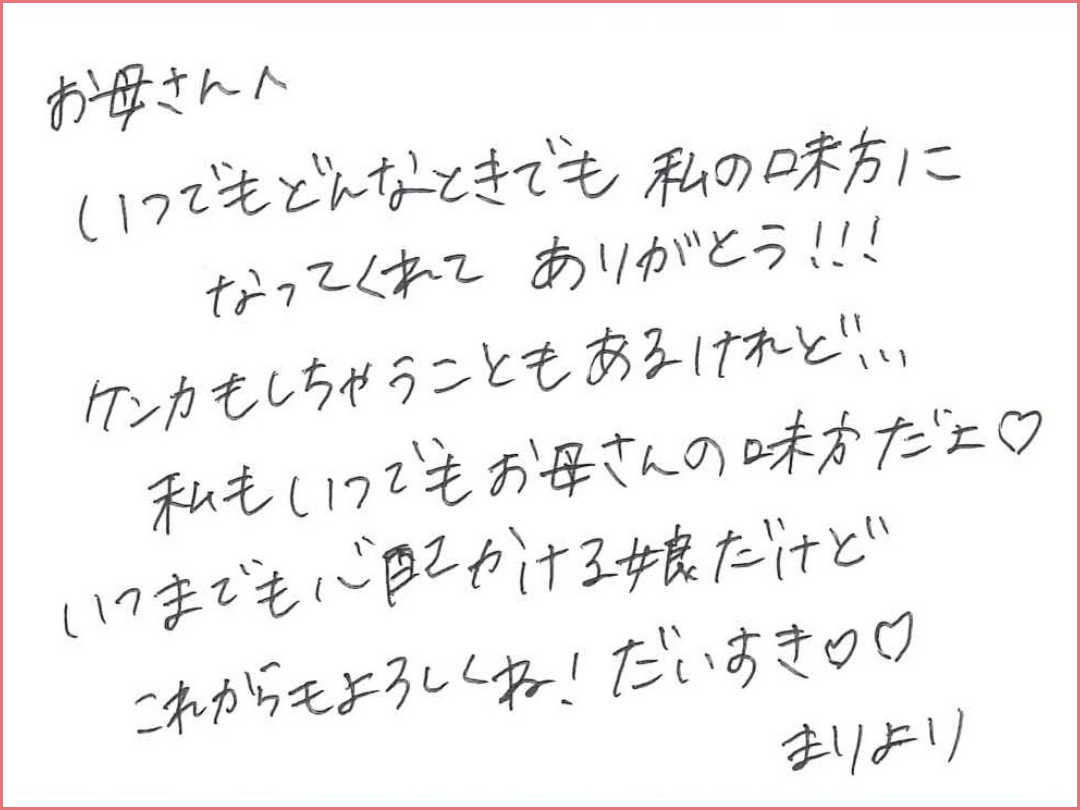 お母さんへ
いつでもどんなときでも 私の味方に
なってくれて ありがとう!!!
ケンカもしちゃうこともあるけれど…
私もいつでもお母さんの味方だよ♡
いつまでも心配かける娘だけど
これからもよろしくね!だいすき♡♡
まりより